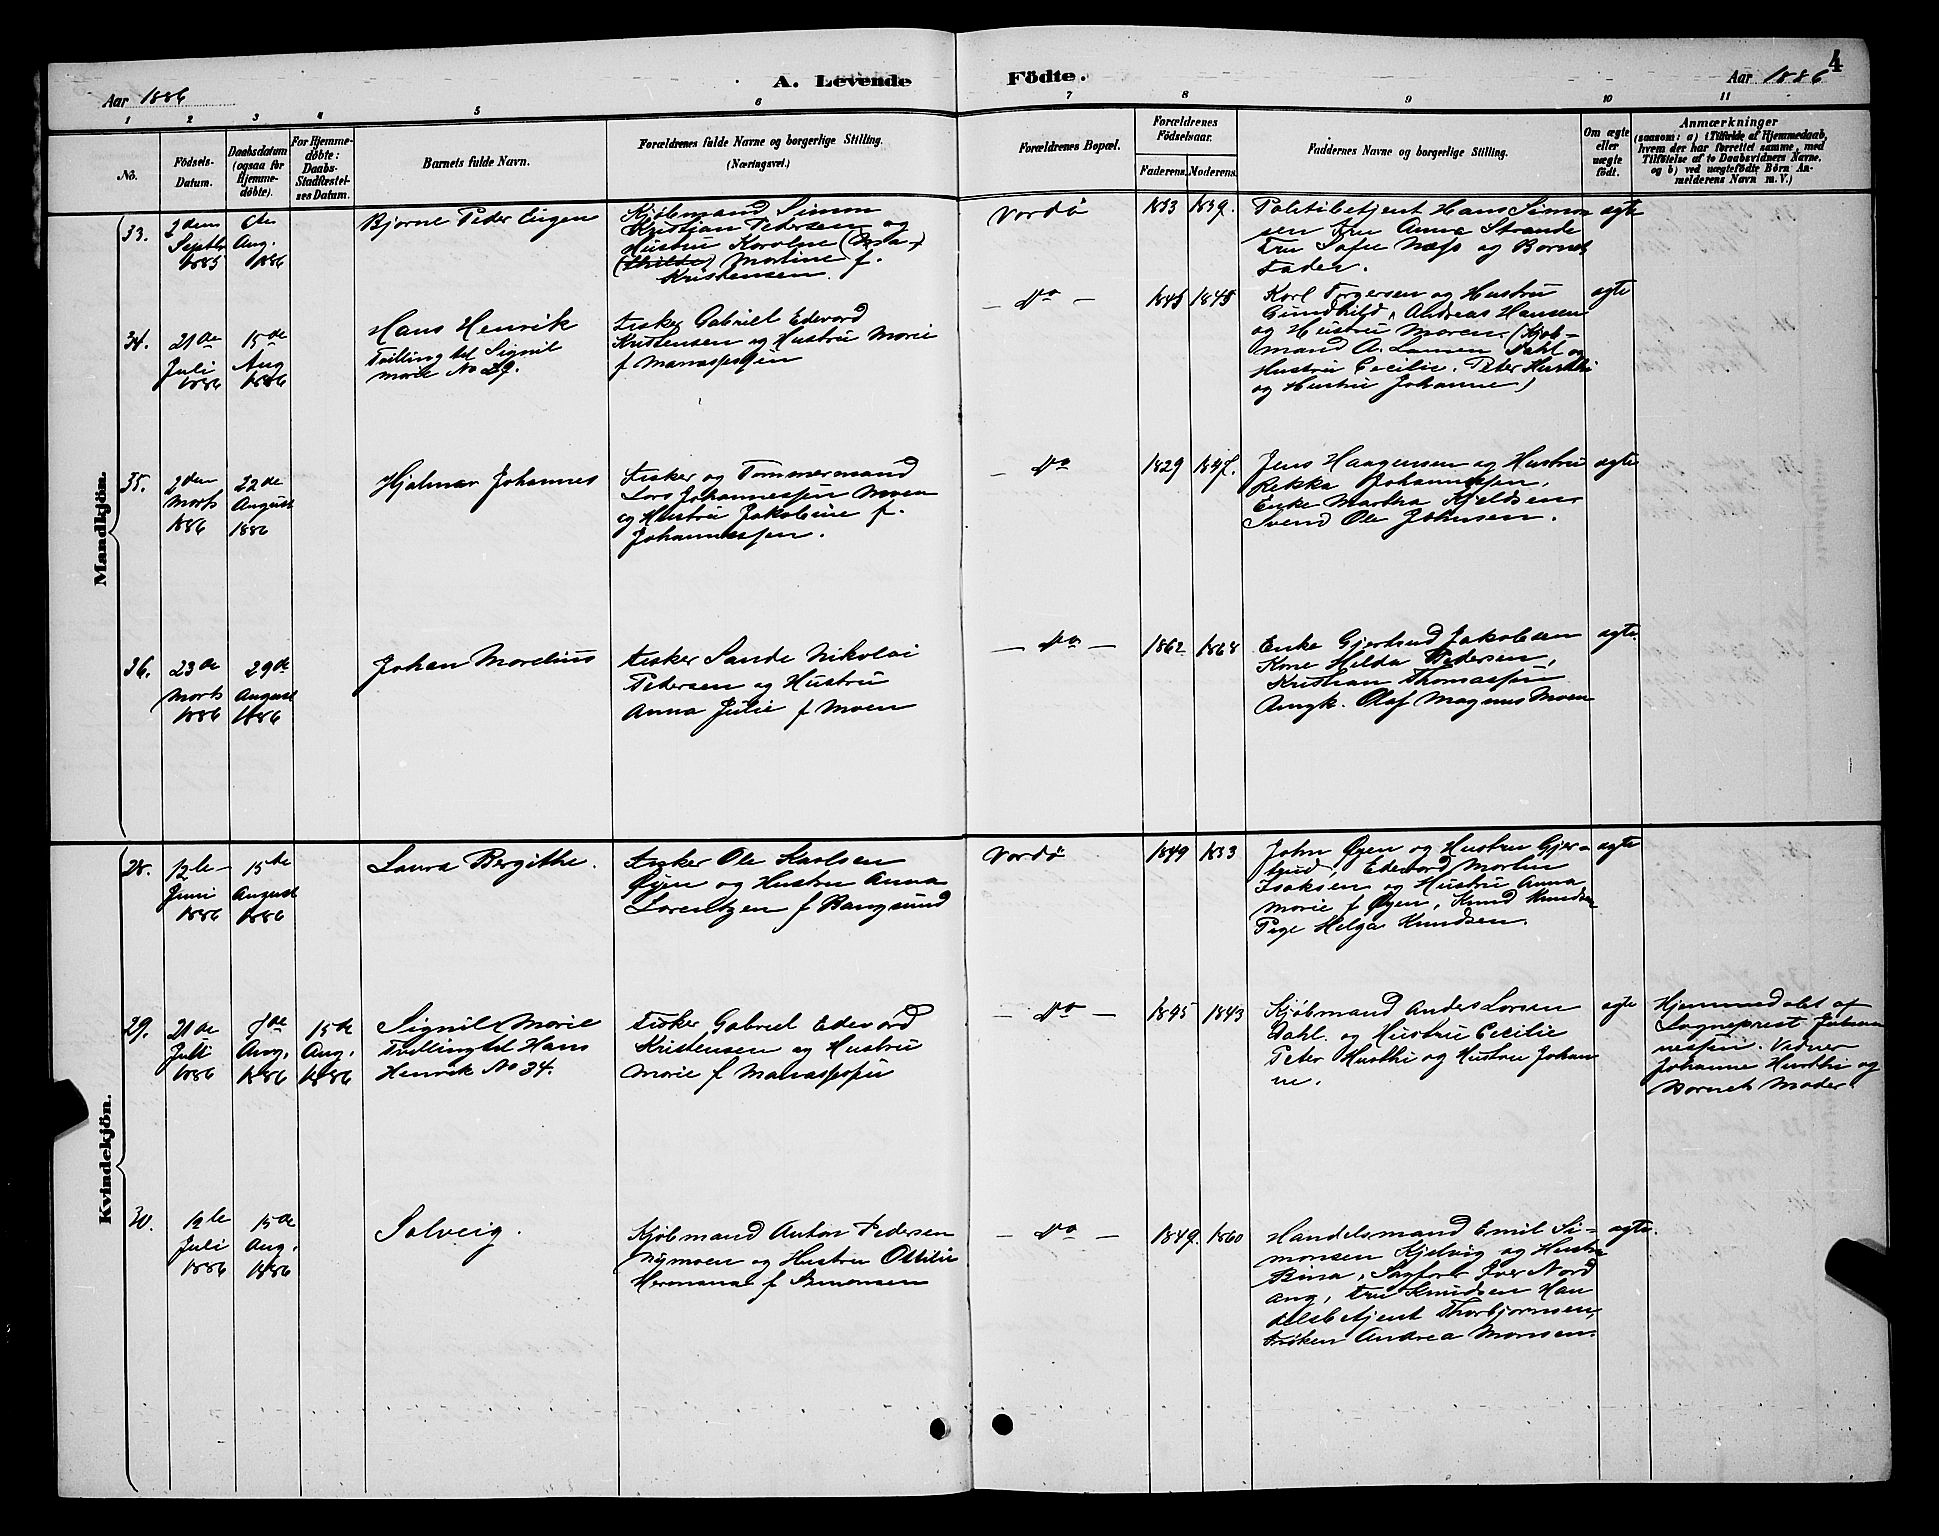 4
Aar 1886
A. Levende Födte.
Aar 1886
1 2 3 4 5 6 7 8 9 10 11
No.
Födsels-Datum.
Daabsdatum (ogsaa for Hjemme-døbte).
For Hjemme-døbte: Daabs-Stadfæstel-ses Datum.
Barnets fulde Navn.
Forældrenes fulde Navne og borgerlige Stilling.
(Næringsvei.)
Forældrenes Bopæl.
Forældrenes Födselsaar.
Faderens. Moderens.
Faddernes Navne og borgerlige Stilling.
Om ægte eller uægte født.
Anmærkninger
(saasom: a) i Tilfælde af Hjemmedaab,
hvem der har forrettet samme, med
Tilføielse af to Daabsvidners Navne,
og b) ved uægtefødte Børn An-
melderens Navn m. V.)
Mandkjön.
33.
2den Septb 1885
Aug. 1886
Bjarne Peder Eugen
Kjøbmand Simon
Kristian Pedersen og
Hustru Karoline
Martine f.
Kristensen.
Vardø
1853 1859.
Politibetjent Hans Simon
sen Fru Anna Strande
Fru Sofie Næss og Barnets
Fader.
ægte
34.
21de Juli 1886
15de Aug 1886
Hans Henrik
Tvilling til Signil
Marie No 29.
Fisker Gabriel Edevard
Kristensen og Hustru Marie
f Manassessen
— Do —
1845 1845
Karl Torgersen og Hustru
Gundhild, Andreas Hansen
og Hustru Maren (Kjøb-
mand A. Larsen Dahl og
Hustru Cecilie. Peter Husthi
og Hustru Johanne)
ægte
35.
2den Marts 1886
22de August 1886
Hjalmar Johannes
Fisker og Tømmermand
Lars Johannessen Moen
og Hustru Jakobine f.
Johannessen.
— Do
1829 1847.
Jens Haagensen og Hustru
Rekka Johannessen,
Enke Martha Kjeldsen
Svend Ole Johnsen.
ægte
36.
23de Marts 1886
29de August 1886
Johan Marelius
Fisker Sande Nikolai
Pedersen og Hustru
Anna Julie f Moen
— Do —
1862 1868
Enke Gjertrud Jakobsen
Kone Hilda Pedersen,
Kristian Thomassen
Ungk. Olaf Magnus Moen
ægte.
Kvindekjön.
28.
12te Juni 1886
15de August 1886
Laura Bergithe.
Fisker Ole Karlsen
Øyen og Hustru Anna
Lorentzen f Bangsund
Vardø
1849 1853
John Øyen og Hustru Gjer-
trud, Edevard Martin
Isaksen og Hustru Anna
Marie f Øyen, Knud Knudsen
Pige Helga Knudsen.
ægte
29.
21de Juli 1886
7de Aug. 1886
15de Aug. 1886
Signil Marie
Tvilling til Hans
Henrik No 34.
Fisker Gabriel Edevard
Kristensen og Hustru
Marie f Manassessen
— Do —
1845 1843
Kjøbmand Anders Larsen
Dahl. og Hustru Cecilie
Peter Husthi og Hustru Johan
ne.
ægte
Hjemmedøbt af
Sogneprest Johan
nessen. Vidner
Johanne Husthi og
Barnets Moder.
30.
12te Juli 1886
15de Aug. 1886
Solveig.
Kjøbmand Anton Pedersen
Nymoen og Hustru Ottilie
Hermana f Simonsen
— Do —
1849. 1860
Handelsmand Emil Si-
monsen Kjelvig og Hustru
Bina, Sagfører Iver Nord
ang, Fru Knudsen Han
delsbetjent Thorbjørnsen,
Frøken Andrea Monsen.
ægte.